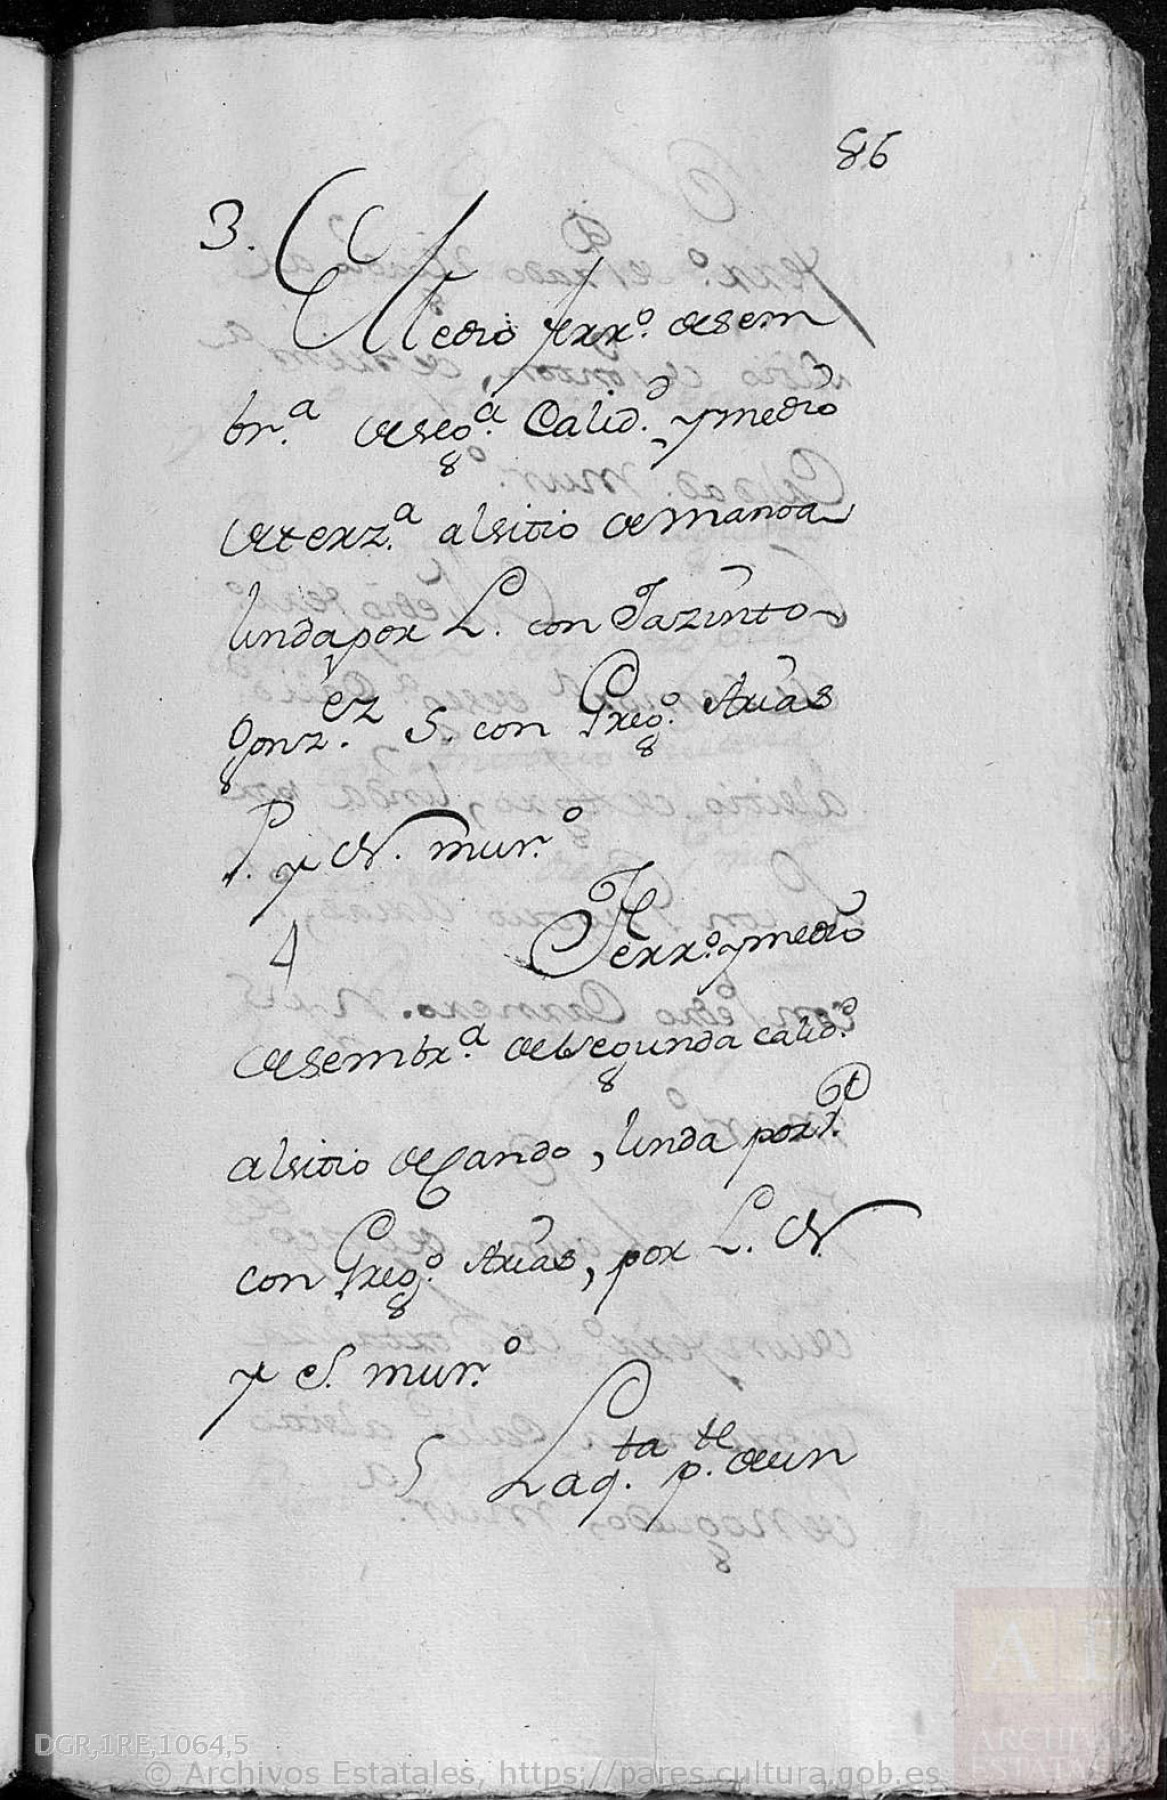 86
3. Medio ferr.º de sem
br.ª de seg.ª Calid.d y medio
de terz.ª al sitio de manda
linda por L. con Jazinto
gonz.ez S. con Greg.º Arias
P. y N. mur.º
4 Ferr.º y medio
de sembr.ª de segunda calid.d
al sitio de Cando, linda por P.
con Greg.º Arias, por L. N.
y S. mur.º
5 La q.ta p.te de un
DGR,1RE,1064,5
© Archivos Estatales, https://pares.cultura.gob.es
AE
ARCHIVOS
ESTATALES